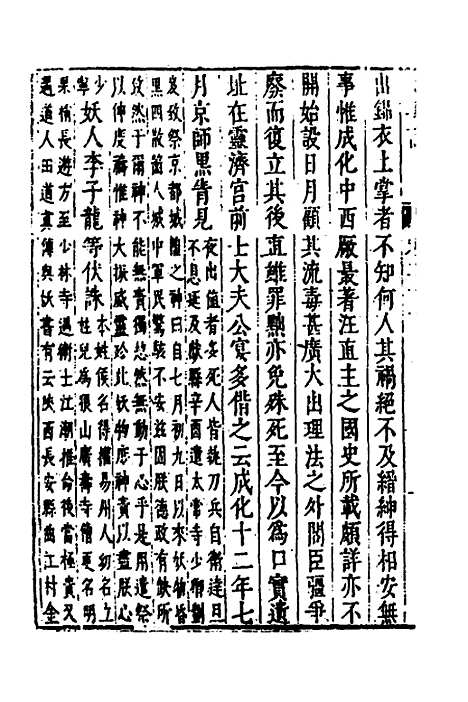 出錦衣上掌者不知何人其禍絕不及縉紳得相安無
事惟成化中西厰最著汪直主之國史所載頗詳亦不
開始設日月顧其流毒甚廣大出理法之外閣臣彊爭
廢而復立其後直雖罪黜亦免殊死至今以爲口實遺
址在靈濟宮前士大夫公宴多借之云成化十二年七
月京師黒眚見夜出值者多死人皆挺刀兵自衛達旦
不息延及獻縣辛酉遣太常寺少卿劉
岌致祭京都城隍之神曰自七月初九日以來妖物昏
黒四散菑人城中軍民驚駭不安茲因朕德政有缺所
致然于爾神不能無責獨悠然無動于心乎是用遣祭
以伸虔禱惟神大振威靈殄此妖物庶神責以盡朕心
少寧妖人李子龍等伏誅本姓侯名得權易州人幼名立
姓兒爲狼山廣壽寺僧更名明
果榆長遊方至少林寺遇術士江潮惟命後當極貴又
遇道人田道真傳與妖書有云陜西長安縣曲江村金